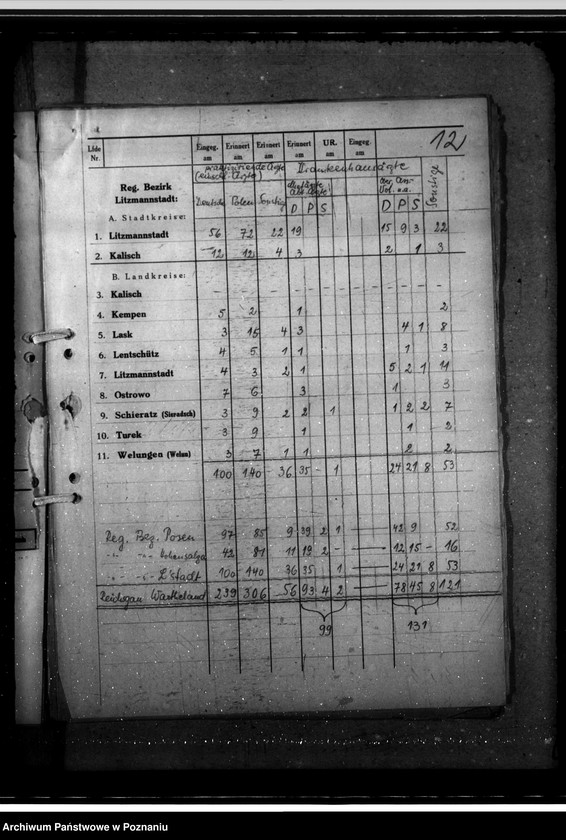 12
Lfde Nr. Eingeg. am Erinnert am Erinnert am Erinnert am UR. am Eingeg. am
Krankenhausärzte
Reg. Bezirk
Litzmannstadt:
Deutsche Polen Sonstige D P S D P S Sonstige
A. Stadtkreise:
1. Litzmannstadt 56 72 22 19 15 9 3 22
2. Kalisch 12 12 4 3 2 1 3
B. Landkreise:
3. Kalisch - - - - - - - -
4. Kempen 5 2 1 2
5. Lask 3 15 4 3 4 1 8
6. Lentschütz 4 5 1 1 1 3
7. Litzmannstadt 4 3 2 1 5 2 1 11
8. Ostrowo 7 6 3 1 3
9. Schieratz (Sieradsch) 3 9 2 2 1 1 2 2 7
10. Turek 3 9 1 1 2
11. Welungen (Welun) 3 7 1 1 2 2
100 140 36 35 - 1 24 21 8 53
Reg. Bez. Posen 97 85 9 39 2 1 42 9 52
-"- -"- Hohensalza 42 81 11 19 2 - — 12 15 - 16
-"- -"- L'stadt 100 140 36 35 1 — 24 21 8 53
Reichsgau Wartheland 239 306 56 93 4 2 — 78 45 8 121
99 131
Archiwum Państwowe w Poznaniu